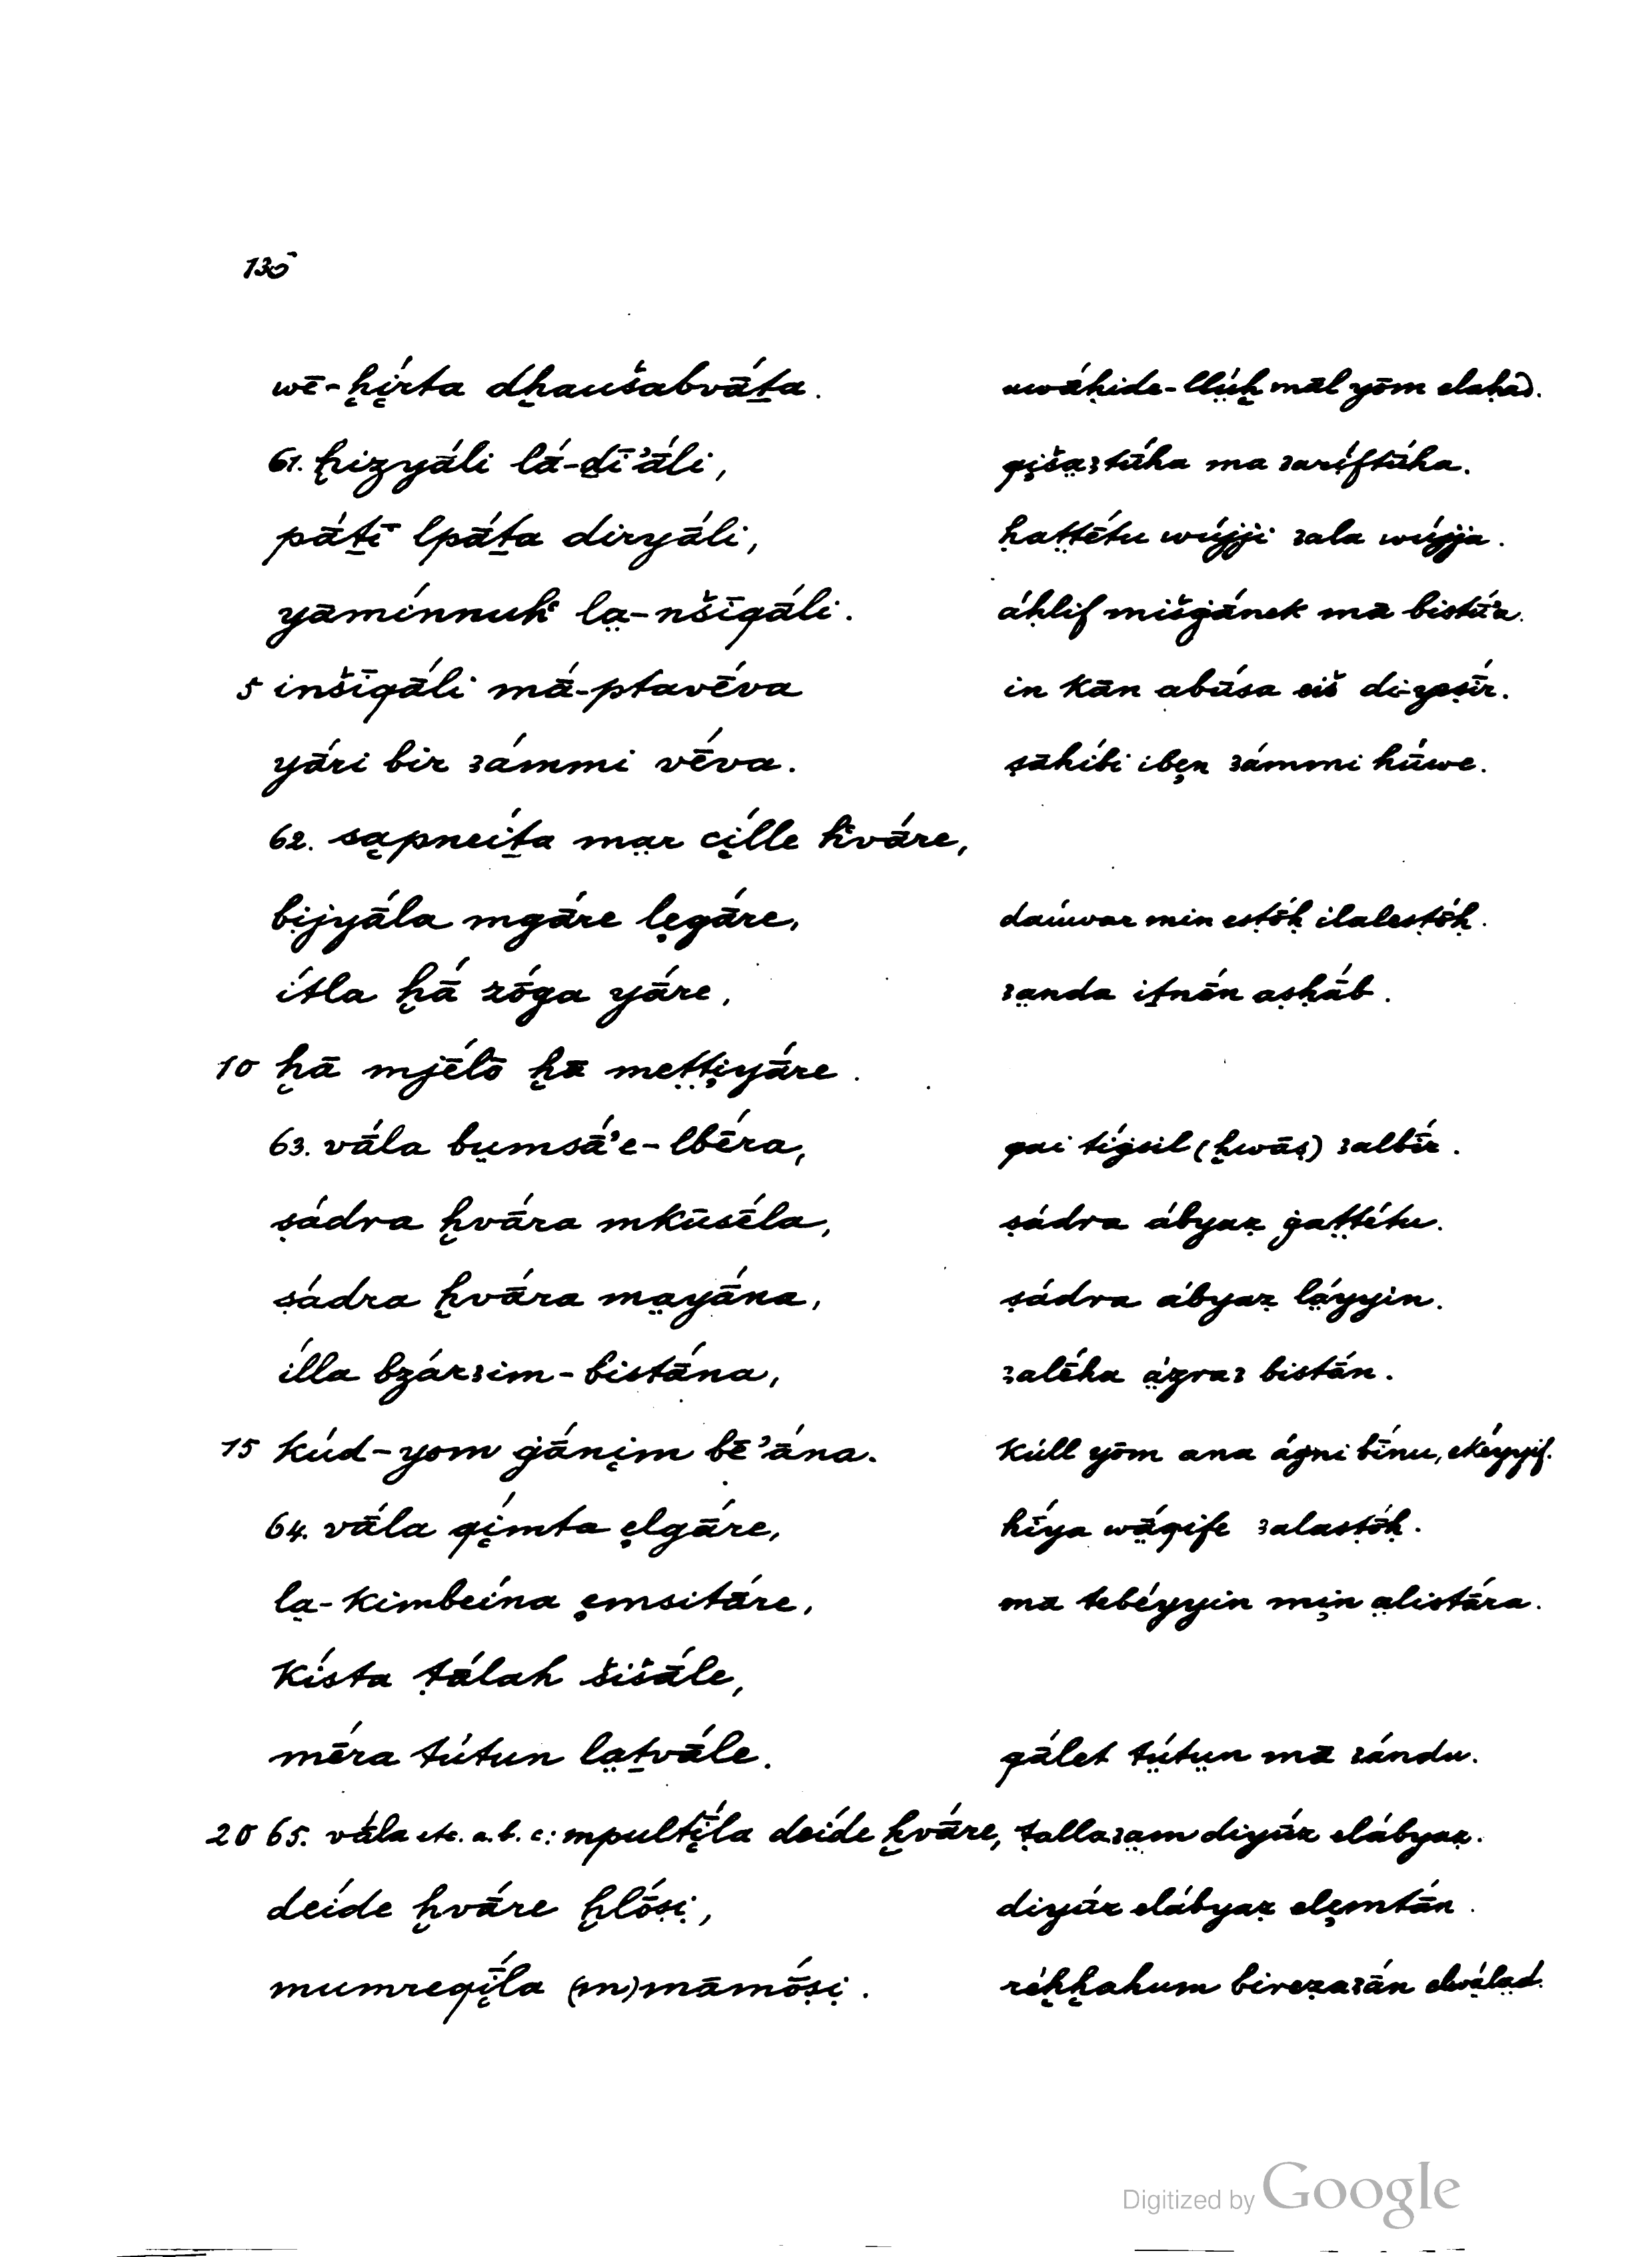 136
wē-ḫı̨́rta dḫaušabvā́ṯa. uwáḥide-llúḫ māl yōm elaḥád.
61. ḫizyā́li lā́-ḏī'ā́li, qišaꜣtū́ha ma ꜣaríftūha.
pā́ṯī lpā́ṯa diryā́li, ḥaṭṭḗtu wújji ꜣala wújja.
yāmínnuḫ la̤-nšīqā́li. áḥlif mišġā́nek mā bistū́a.
5 inšīqā́li mā́-ptavḗva in kān abū́sa eiš di-yeṣī́r.
yā́ri bir ꜣámmi vḗva. ṣāḥíbi ibęn ꜣámmi hū́we.
62. sąpneíṯa ma̤r cı̨́lle ḫvā́re,
bijyā́la mgā́re lęgā́re, daúwar min esṭṓḥ ilalesṭṓḥ.
ítla ḫā́ zṓga yā́re, ꜣa̤nda iṯnḗn aṣḥā́b.
10 ḫā mjḗlō ḫā meṭṭiyā́re.
63. vā́la bṳmsā́'e-lbḗra, qai tíġsil (ḫwāṣ) ꜣalbī́r.
ṣádra ḫvā́ra mkūsḗla, ṣádra ábyaẓ ġaṭṭḗtu.
ṣádra ḫvā́ra ma̤yā́na, ṣádra ábyaẓ lá̤yyin.
ílla bzárꜣim-bistā́na, ꜣalḗha á̤zraꜣ bistā́n.
15 kúd-yom ġā́nı̨m bē'ā́na. kúll yōm ana áġni bī́nu, ekéyyif.
64. vā́la qı̨́mta ęlgā́re, hī́ya wā̤́qife ꜣalasṭṓḥ.
la̤-kimbeína ęmsitā́re, mā tebéyyin mı̨n a̤listā́ra.
kísta ṭā́lah šišā́le,
mḗra tútun la̤ṯvā́le. qā́let tṳ́tṳn mā ꜣándu.
20 65. vā́la etc. a. b. c: mpultı̨̄́la deíde ḫvā́re, ṭallaꜣa̤m diyū́z elábyaẓ.
deíde ḫvā́re ḫlṓṣi, diyū́z elábyaẓ elęmtā́n.
mumreqı̨̄́la (m)māmṓṣi. réḫḫahum bireẓaꜣā́n elwá̤lad.
Digitized by Google